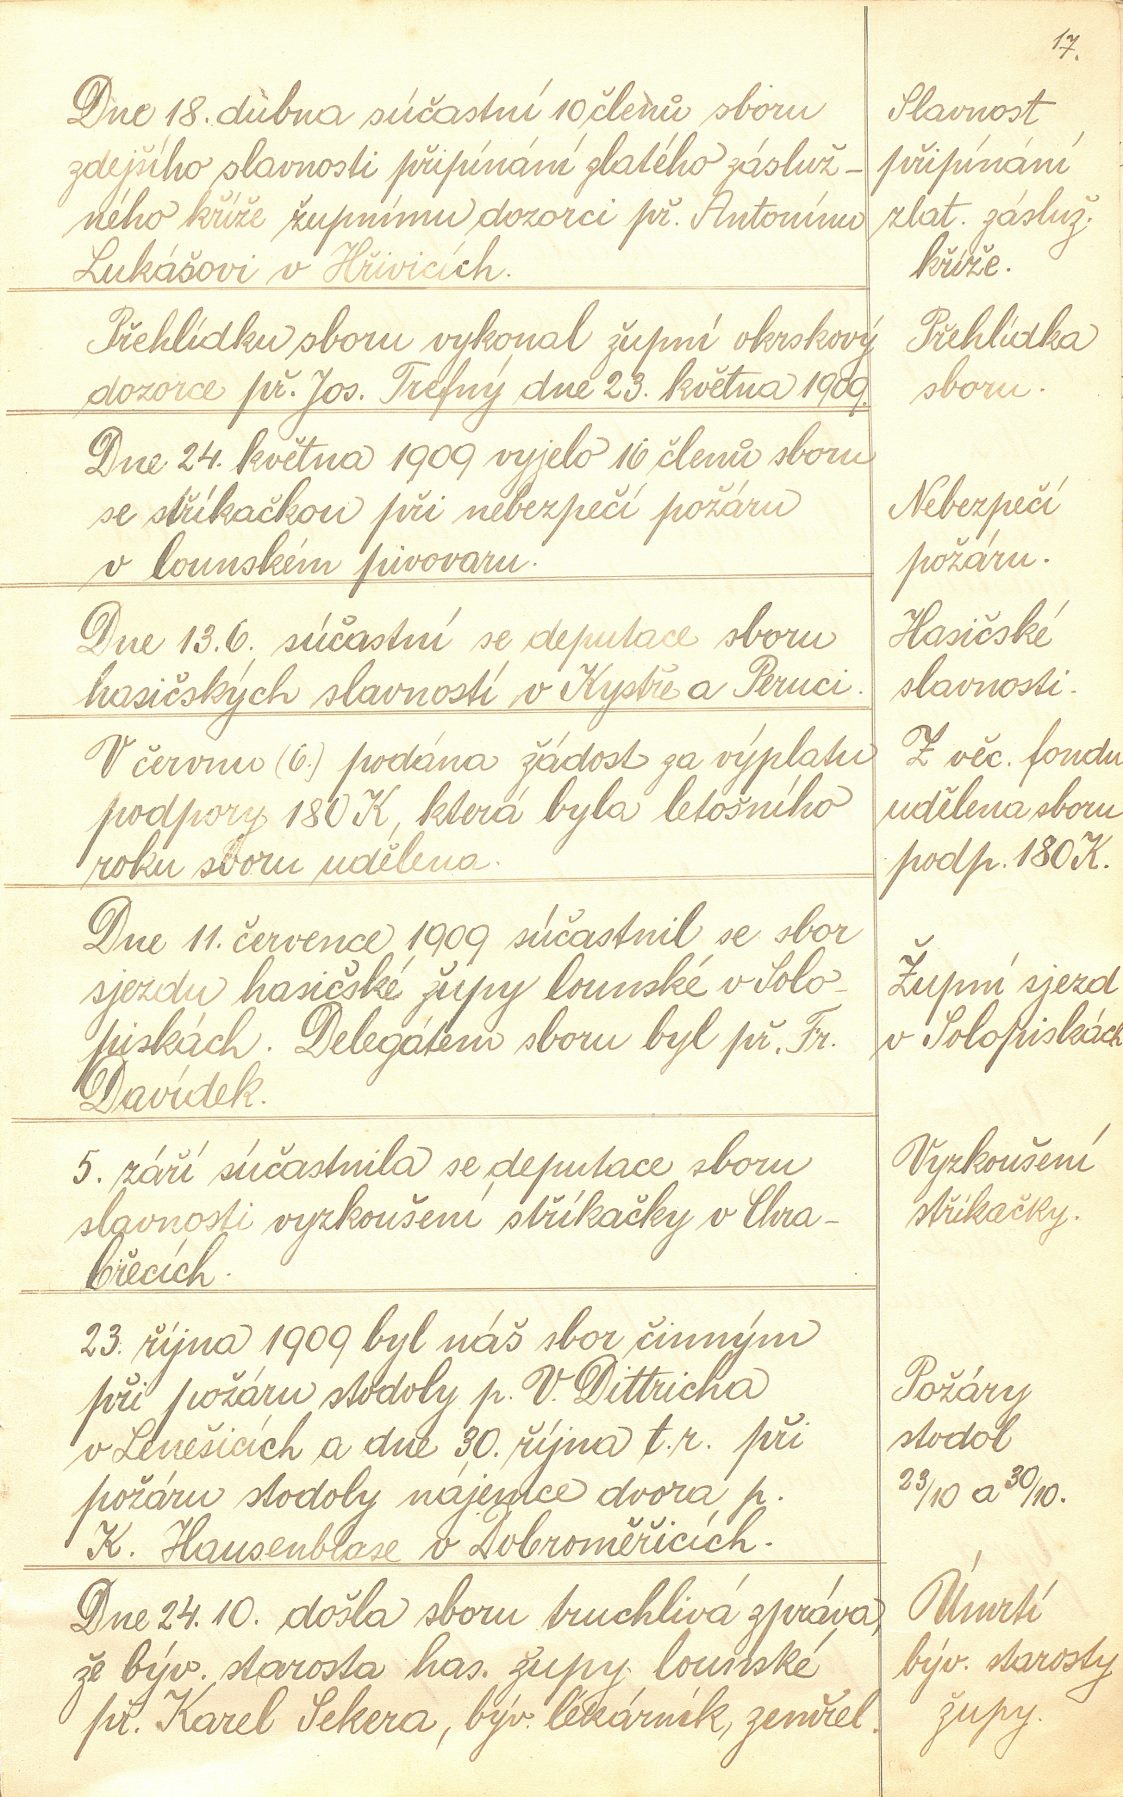 17.
Dne 18. dubna súčastní 10 členů sboru
zdejšího slavnosti připínání zlatého záslüž-
ného kříže župnímu dozorci př. Antonínu
Lukášovi v Hřivicích.
Slavnost
připínání
zlat. zásluž.
kříže.
Přehlídku sboru vykonal župní okrskový
dozorce př. Jos. Trefný dne 23. května 1909.
Přehlídka
sboru.
Dne 24. května 1909 vyjelo 16 členů sboru
se stříkačkou při nebezpečí požáru
v lounském pivovaru.
Nebezpečí
požáru.
Dne 13.6. súčastní se deputace sboru
hasičských slavností v Kystře a Peruci.
Hasičské
slavnosti.
V červnu (6.) podána žádost za výplatu
podpory 180 K, která byla letošního
roku sboru udělena.
Z věc. fondu
udělena sboru
podp. 180 K.
Dne 11. července 1909 súčastnil se sbor
sjezdu hasičské župy lounské v Solo-
piskách. Delegátem sboru byl př. Fr.
Davídek.
Župní sjezd
v Solopiskách
5. září súčastnila se deputace sboru
slavnosti vyzkoušení stříkačky v Chra-
břecích.
Vyzkoušení
stříkačky.
23. října 1909 byl náš sbor činným
při požáru stodoly p. V. Dittricha
v Lenešicích a dne 30. října t.r. při
požáru stodoly nájemce dvora p.
K. Hausenblase v Dobroměřicích.
Požáry
stodol
23/10 a 30/10.
Dne 24. 10. došla sboru truchlivá zpráva,
že býv. starosta has. župy lounské
př. Karel Sekera, býv. lékárník, zemřel.
Úmrtí
býv. starosty
župy.